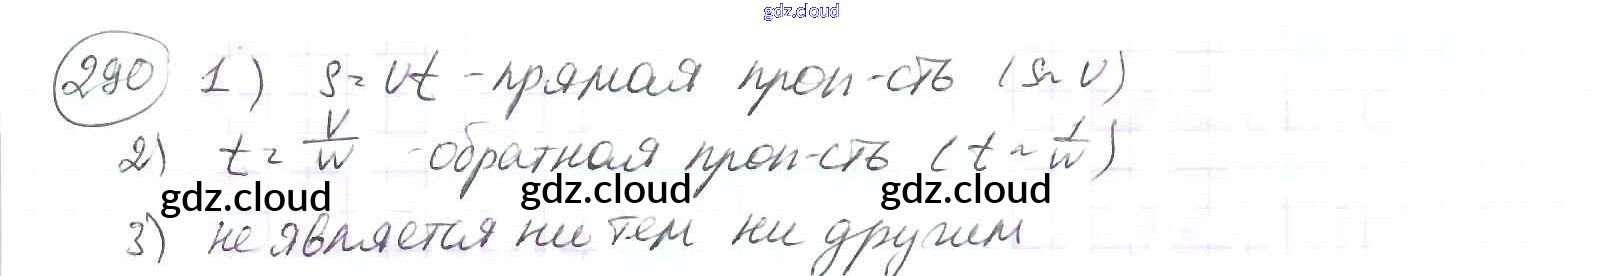 gdz.cloud
290 1) s = vt - прямая проп-сть (s ~ v)
2) t = V/W - обратная проп-сть (t ~ 1/W)
gdz.cloud gdz.cloud gdz.cloud
3) не является ни тем ни другим